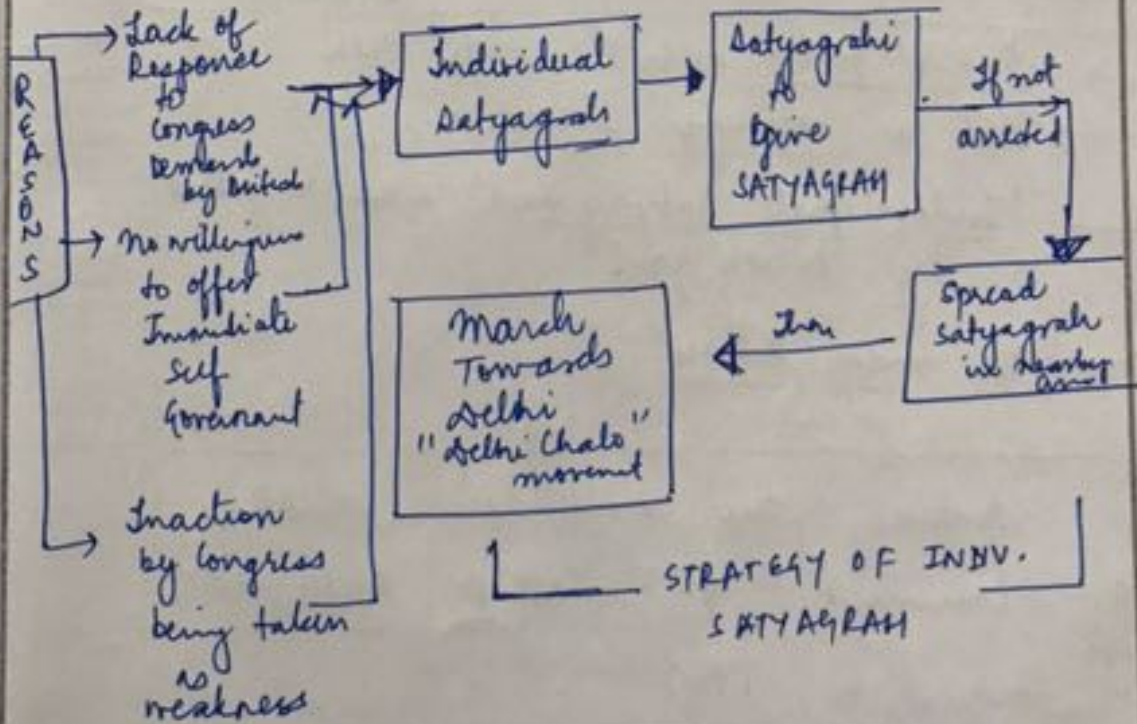 REASONS
Lack of
Responce
to
Congress
Demands
by British
No willingness
to offer
Immidiate
Self
Government
Inaction
by Congress
being taken
as
weakness
Individual
Satyagrah
Satyagrahi
give
SATYAGRAH
If not
arrested
Spread
Satyagrah
in nearby
Then
March
Towards
Delhi
"Delhi Chalo"
movement
STRATEGY OF INDV.
SATYAGRAH